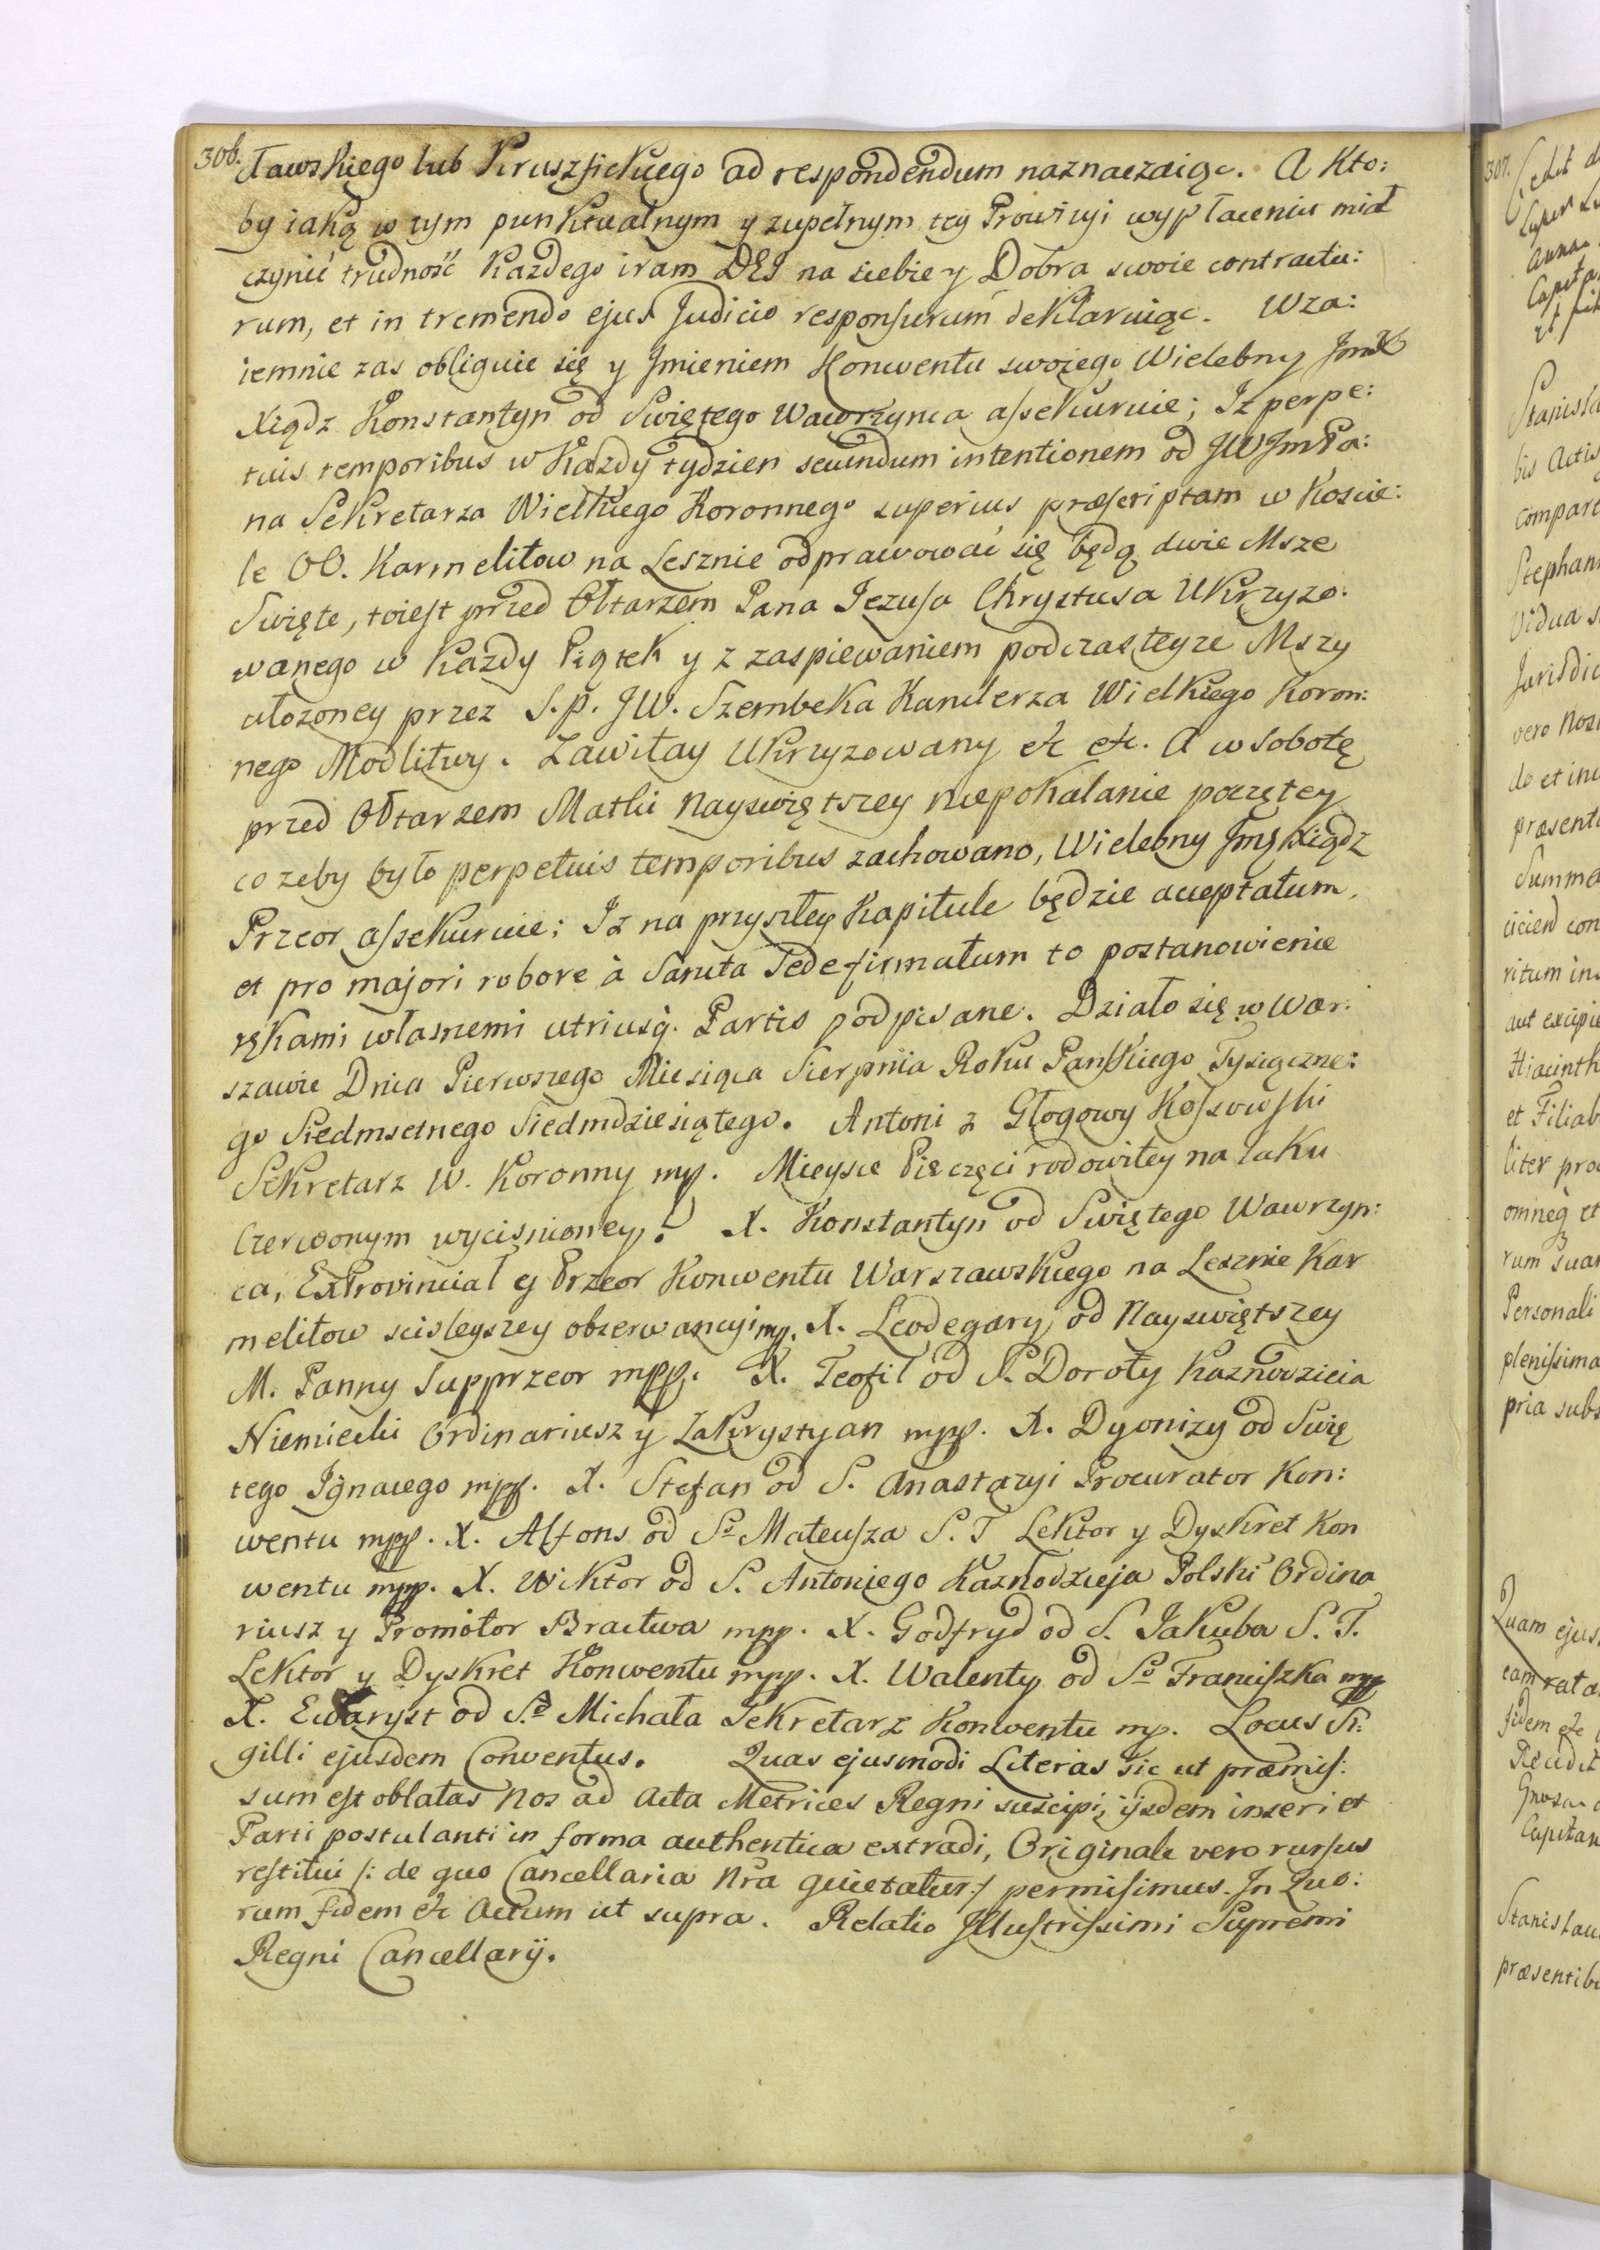 306.
ławskiego lub Kruszfickiego ad respondendum naznaczaiąc. A Kto:
by iaką w tym punktualnym y zupełnym tey Prowizyi wypłaceniu miał
czynić trudność Każdego iram DEI na siebie y Dobra swoie contractu:
rum, et in tremendo ejus Judicio responsurum deklaruiąc. Wza:
iemnie zas obliguie się y Jmieniem Konwentu swoiego Wielebny Jmć
Xiądz Konstantyn od Swiętego Wawrzynca assekuruie; Iz perpe:
tuis temporibus w Kazdy tydzien secundum intentionem od JWJmPa:
na Sekretarza Wielkiego Koronnego superius præscriptam w Koscie:
le OO. Karmelitow na Lesznie odprawować się będą dwie Msze
Swięte, toiest przed Ołtarzem Pana Jezusa Chrystusa Ukrzyzo:
wanego w Kazdy Piątek y z zaspiewaniem podczas teyze Mszy
ułozoney przez S.p. JW. Szembeka Kanclerza Wielkiego Koron:
nego Modlitwy. Zawitay Ukrzyzowany etc etc. A w sobotę
przed Ołtarzem Matki Nayswiętszey niepokalanie poczętey
co zeby było perpetuis temporibus zachowano, Wielebny Jmć Xiądz
Przeor assekuruie; Iż na przyszłey Kapitule będzie acceptatum,
et pro majori robore à Sancta Sede firmatum to postanowienie
rękami własnemi utriusq. Partis podpisane. Działo się w War:
szawie Dnia Pierwszego Miesiąca Sierpnia Roku Panskiego Tysiączne:
go Siedmsetnego Siedmdziesiątego. Antoni z Głogowy Kossowski
Sekretarz W. Koronny mp. Mieysce Pieczęci rodowitey na laku
Czerwonym wycisnioney. X. Konstantyn od Swiętego Wawrzyn:
ca, ExProvinciał y Przeor Konwentu Warszawskiego na Lesznie Kar
melitow scisleyszey obserwancyi mp. X. Leodegary od Nayswiętszey
M. Panny Supprzeor mpp. X. Teofil od S. Doroty Kaznodzieia
Niemiecki Ordinariusz y Zakrystyan mpp. X. Dyonizy od Swię
tego Ignacego mpp. X. Stefan od S. Anastazyi Procurator Kon:
wentu mpp. X. Alfons od Sº Mateusza S. T Lektor y Dyskret Kon
wentu mpp. X. Wiktor od S. Antoniego Kaznodzieja Polski Ordina
riusz y Promotor Bractwa mpp. X. Godfryd od S. Jakuba S. T.
Lektor y Dyskret Konwentu mpp. X. Walenty od Sº Franciszka mpp
X. Ewaryst od Sº Michała Sekretarz Konwentu mp. Locus Si:
gilli ejusdem Conventus. Quas ejusmodi Literas sic ut præmis:
sum est oblatas Nos ad Acta Metrices Regni suscipi, ijsdem inseri et
Parti postulanti in forma authentica extradi, Originale vero rursus
restitui /: de quo Cancellaria Nra quietatur :/ permisimus. In Quo:
rum fidem etc Actum ut supra. Relatio Illustrissimi Supremi
Regni Cancellarij.
307.
Stanisła
bis Actis
compare
Stephan
Vidua s
Jurisdic
vero nos
do et in
præsent
Summa
ritum in
aut excipie
Hiacinth
et Filiab
liter pro
omneq et
rum suar
Personali
plenissima
pria subs
Quam ejus
eam rata
fidem etc
Capitan
Stanislau
præsentib